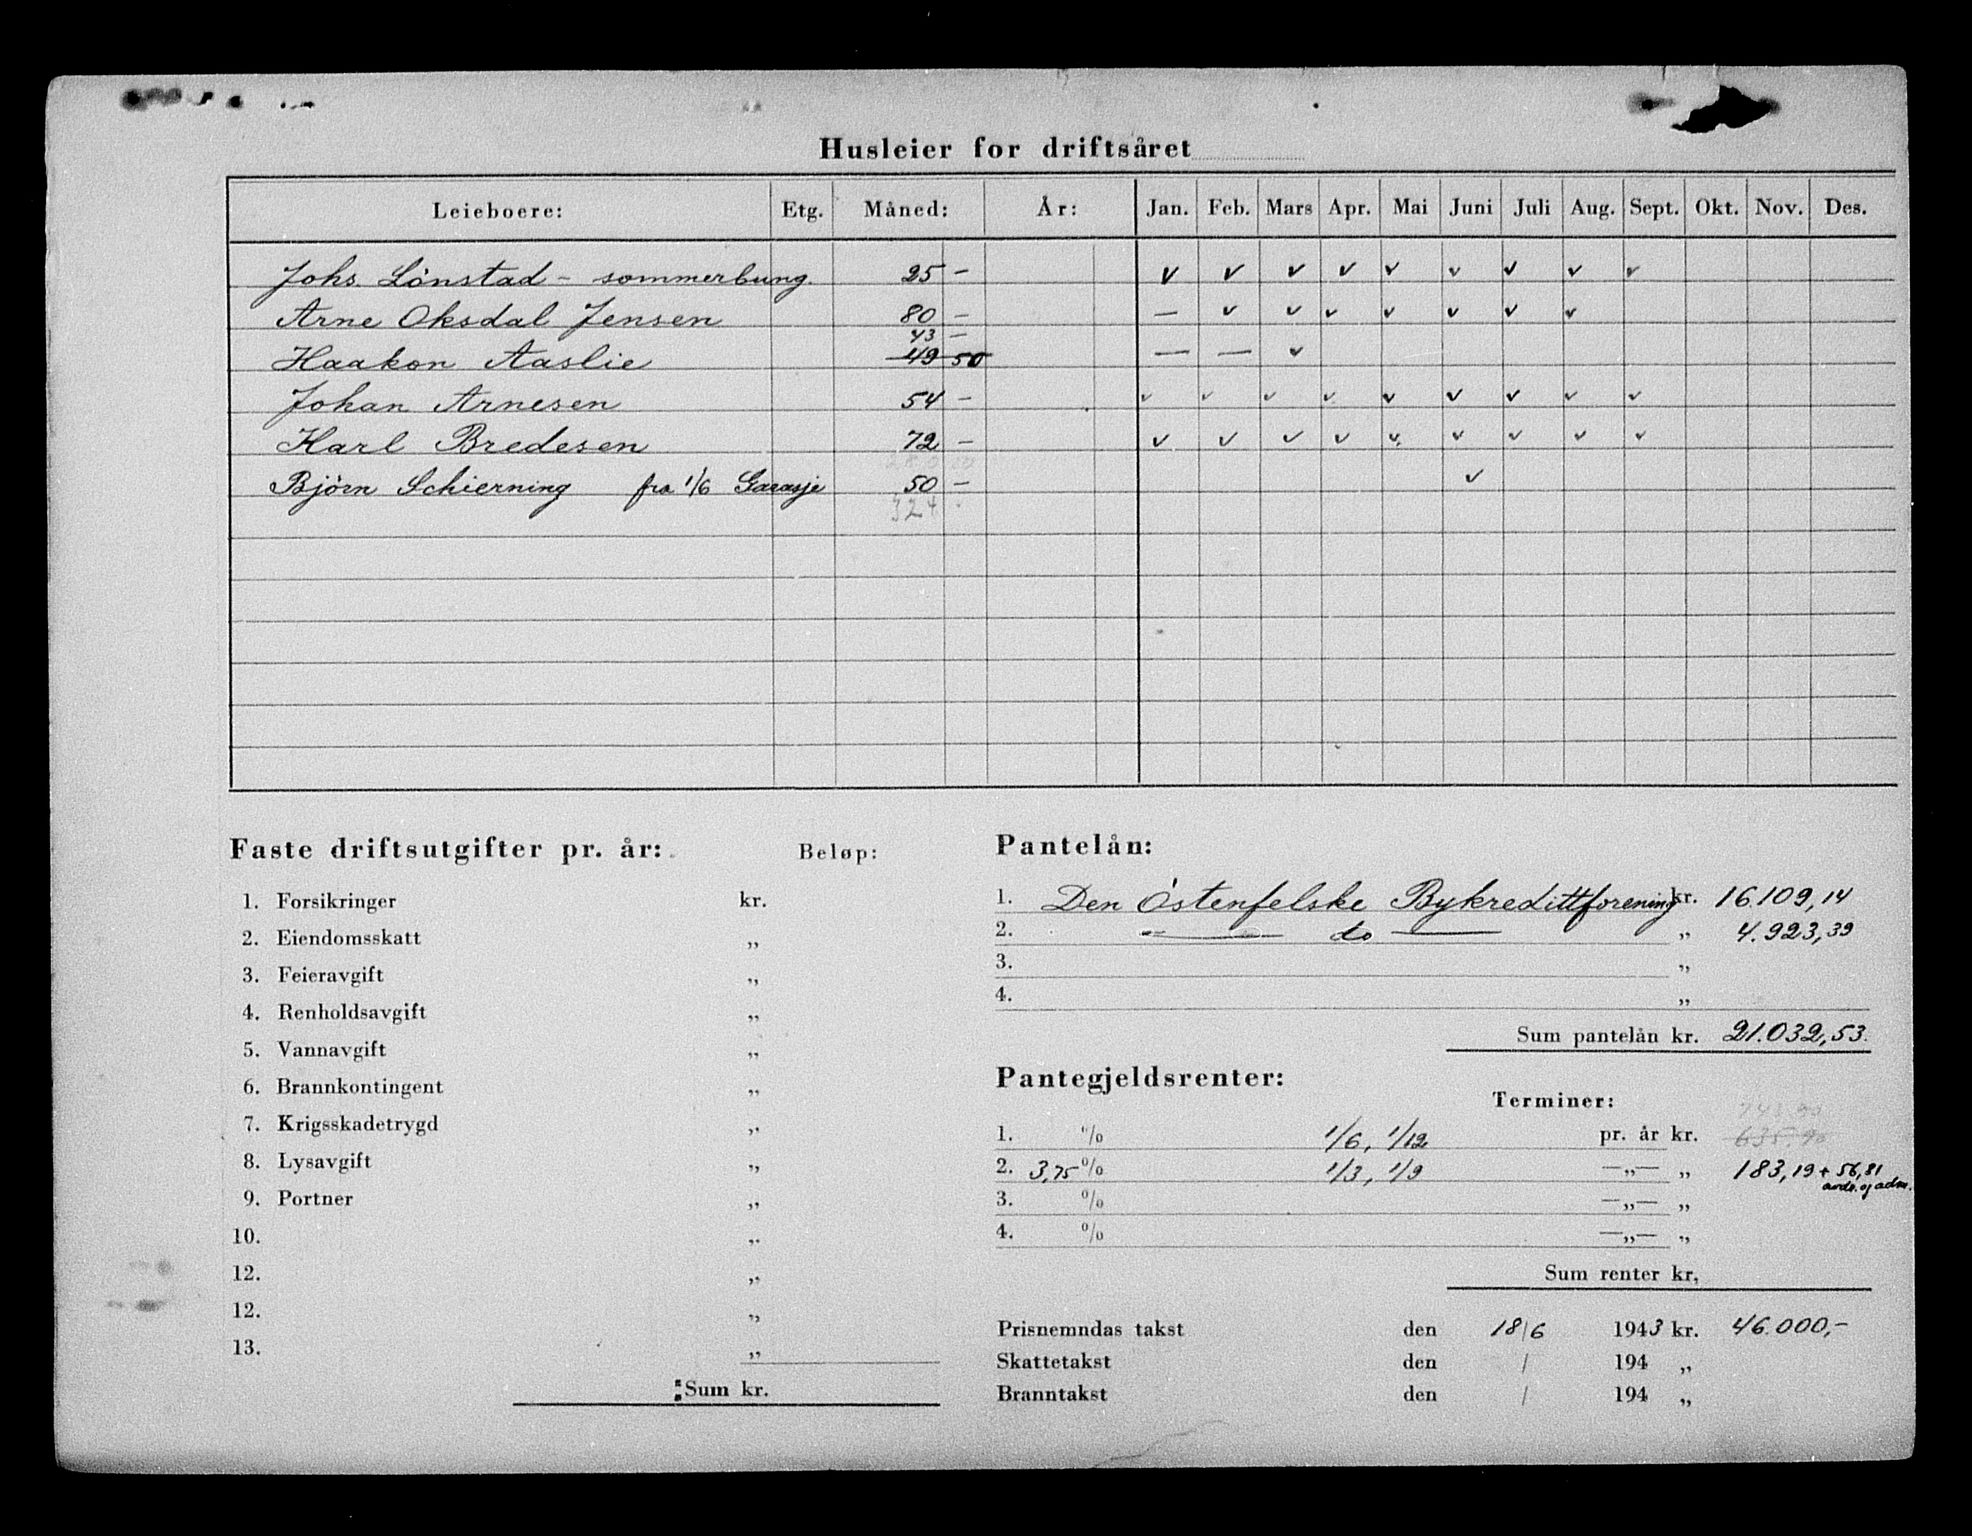 Husleier for driftsåret
Leieboere: Etg. Måned: År: Jan. Feb. Mars Apr. Mai Juni Juli Aug. Sept. Okt. Nov. Des.
Johs. Lönstad - sommerbung. 25 - v v v v v v v v v
Arne Oksdal Jensen 80 - — v v v v v v v
43 -
Haakon Aaslie 49 50 — — v
Johan Arnesen 54 - v v v v v v v v v
Karl Bredesen 72 - v v v v v v v v v
Björn Schierning fra 1/6 Garasje 50 - v
324 -
Faste driftsutgifter pr. år: Beløp:
1. Forsikringer kr.
2. Eiendomsskatt „
3. Feieravgift „
4. Renholdsavgift „
5. Vannavgift „
6. Brannkontingent „
7. Krigsskadetrygd „
8. Lysavgift „
9. Portner „
10. „
12. „
12. „
13. „
Sum kr.
Pantelån:
1. Den Östenfelske Bykredittforening kr. 16.109,14
2. — do — „ 4.923,39
3. „
4. „
Sum pantelån kr. 21.032,53.
Pantegjeldsrenter:
Terminer:
743.90
1. % 1/6, 1/12 pr. år kr. 635.90
2. 3,75 % 1/3, 1/9 —„— „ 183,19 + 56,81
avdr. og adm.
3. % —„— „
4. % —„— „
Sum renter kr.
Prisnemndas takst den 18/6 1943 kr. 46.000,-
Skattetakst den / 194 „
Branntakst den / 194 „